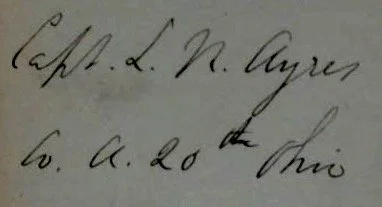 Capt. L. N. Ayres
Co. A. 20th Ohio